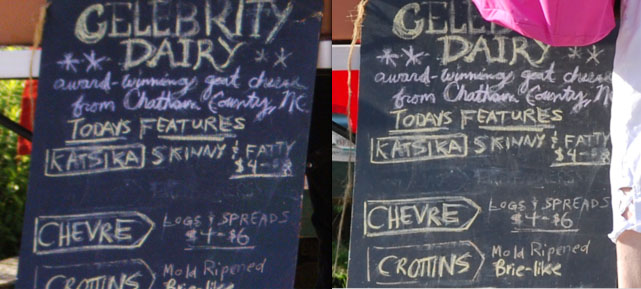 CELEBRITY
DAIRY
award-winning goat cheese
from Chatham County, NC.
TODAYS FEATURES
KATSIKA SKINNY & FATTY
$4-$8
CHEVRE LOGS & SPREADS
$4-$6
CROTTINS Mold Ripened
Brie-like
CELEBRITY
DAIRY
award-winning goat cheese
from Chatham County, N
TODAYS FEATURES
KATSIKA SKINNY & FATTY
$4-$8
CHEVRE LOGS & SPREADS
$4-$6
CROTTINS Mold Ripened
Brie-like